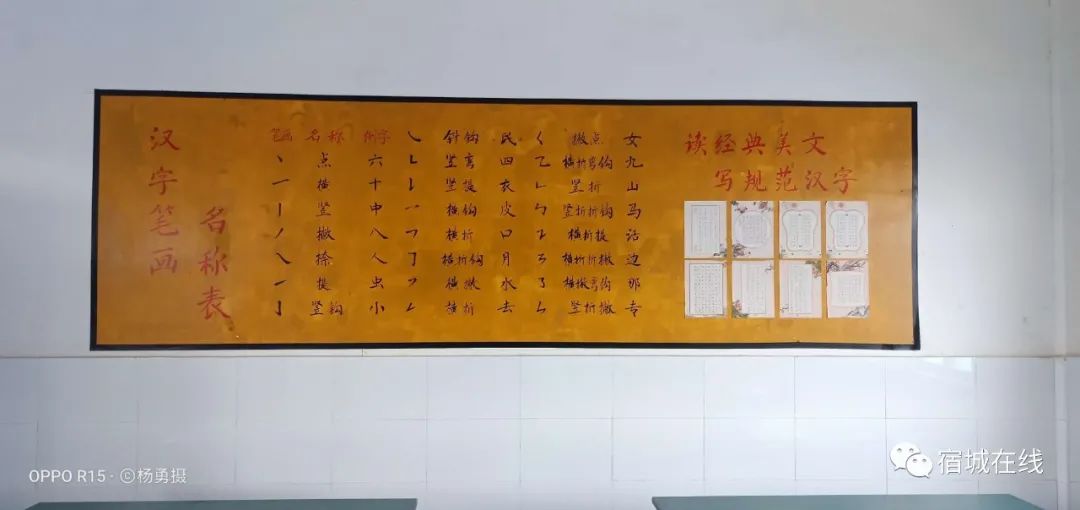 汉字笔画
名称表
笔画 名称 例字 ㇂ 斜钩 民 ㇛ 撇点 女
丶 点 六 ㇄ 竖弯 四 ㇈ 横折弯钩 九
一 横 十 ㇙ 竖提 衣 ㇗ 竖折 山
丨 竖 中 ㇖ 横钩 皮 ㇉ 竖折折钩 马
丿 撇 八 ㇕ 横折 口 ㇊ 横折提 话
㇏ 捺 人 ㇆ 横折钩 月 ㇋ 横折折撇 边
㇀ 提 虫 ㇇ 横撇 水 ㇌ 横撇弯钩 那
亅 竖钩 小 ㇜ 横折 去 ㇞ 竖折撇 专
读经典美文
写规范汉字
OPPO R15 · ©杨勇摄
宿城在线